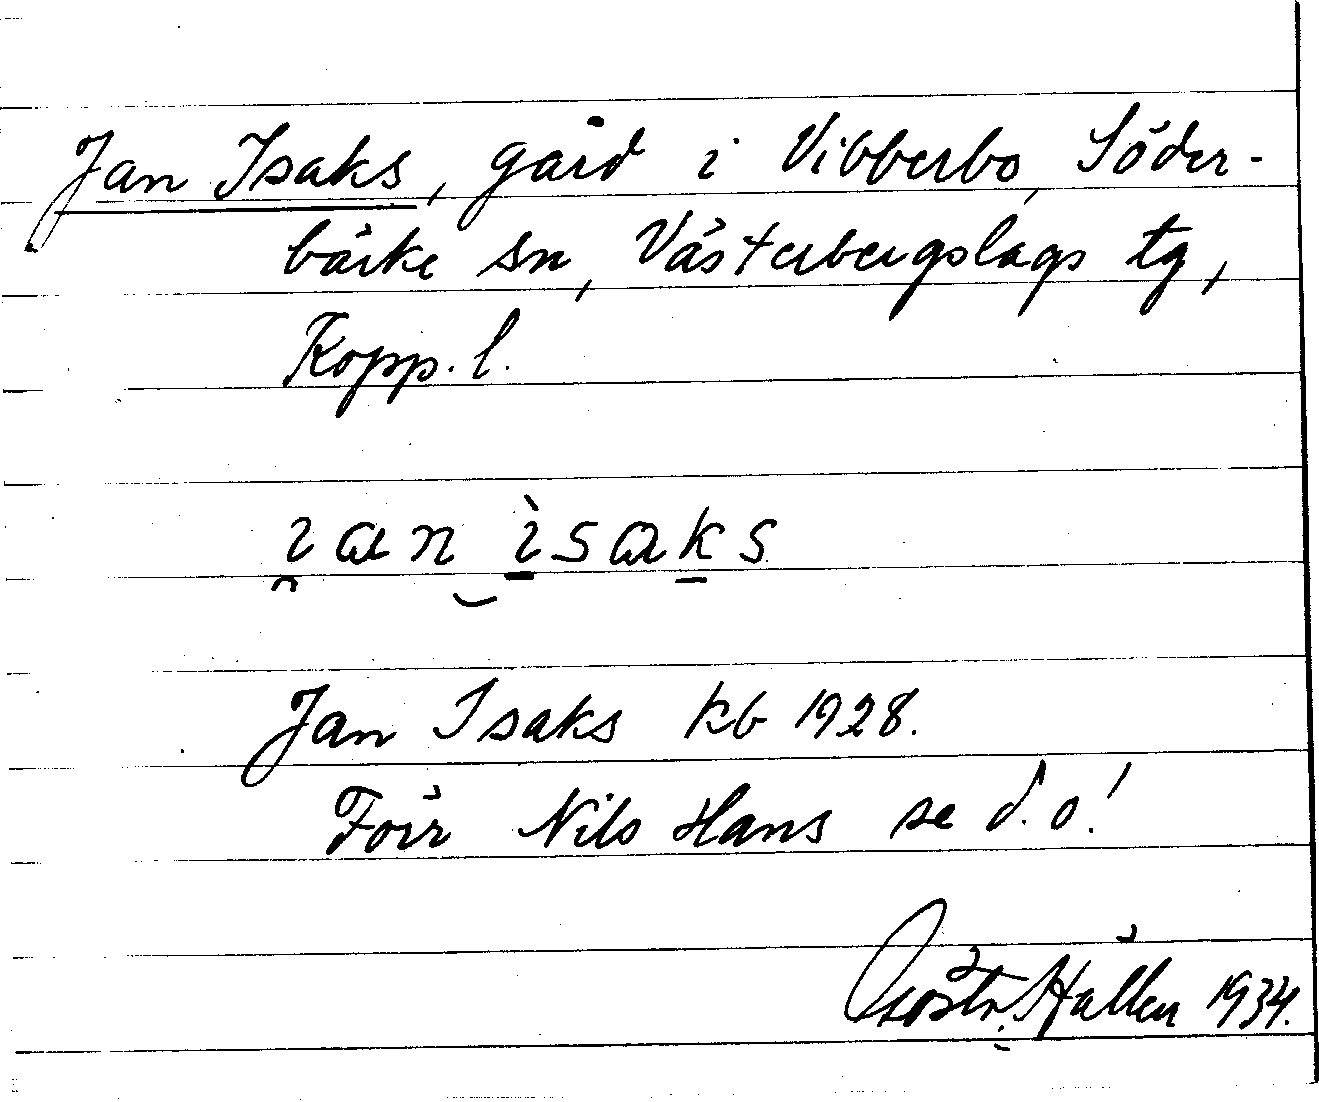 Jan Isaks, gård i Vibberbo, Söder-
bärke sn, Västerbergslags tg,
Kopp. l.
i̯an‿ìsaks
Jan Isaks kb 1928.
Förr Nils Hans se d. o!
Hällen 1934.